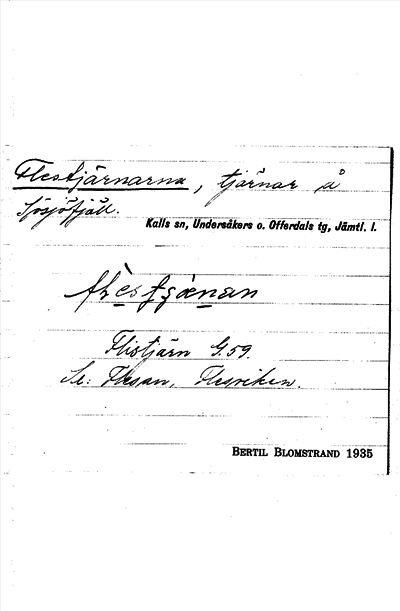 Flestjärnarna, tjärnar å
Sösjöfjäll.
Kalls sn, Undersåkers o. Offerdals tg, Jämtl. l.
Flistjärn G.59.
Se: Flesan, Flesviken.
BERTIL BLOMSTRAND 1935